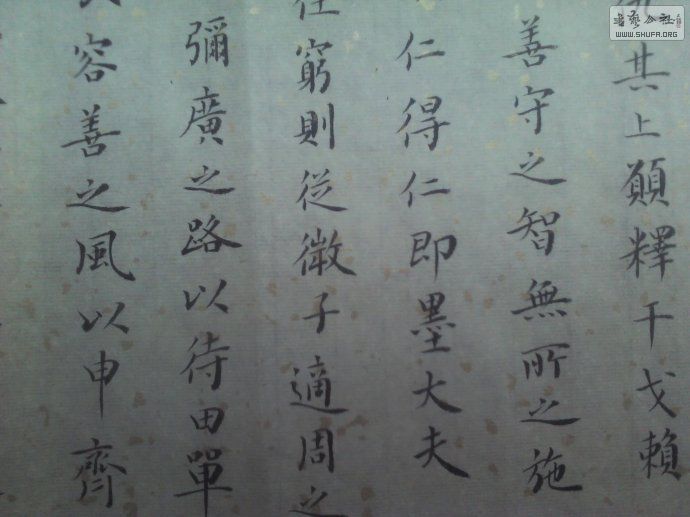 其上願釋干戈賴
善守之智無所之施
仁得仁即墨大夫
任窮則從微子適周之
彌廣之路以待田單
容善之風以申齊
書藝公社
WWW.SHUFA.ORG